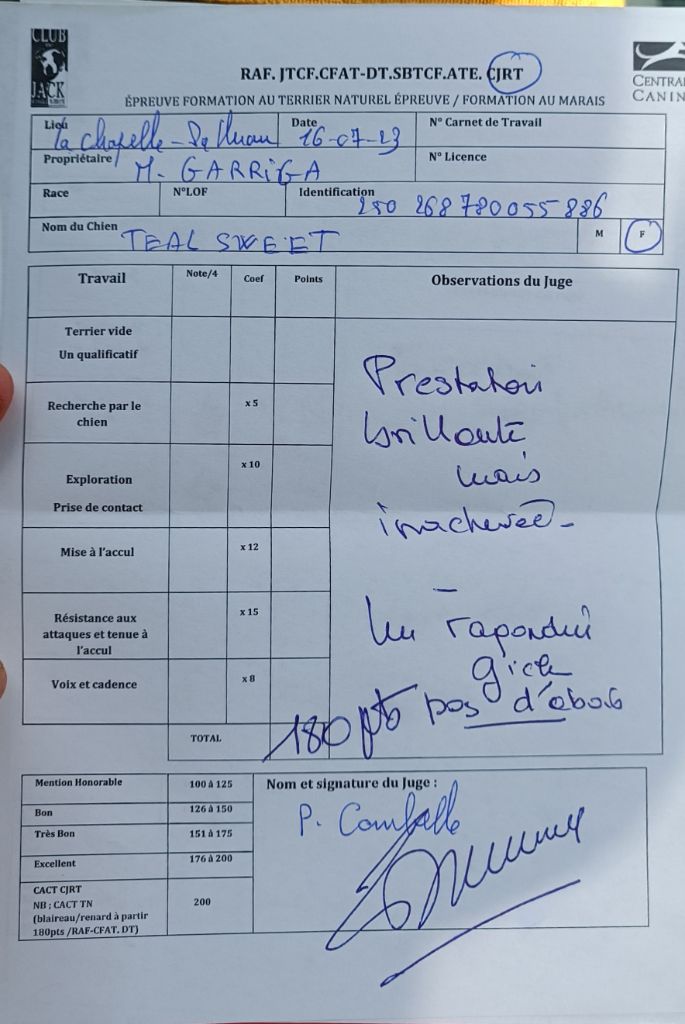 CLUB
JACK
RAF. JTCF.CFAT-DT.SBTCF.ATE. CJRT
CENTRAL
CANIN
ÉPREUVE FORMATION AU TERRIER NATUREL ÉPREUVE / FORMATION AU MARAIS
Lieu La Chapelle- Date 16-07-23 N° Carnet de Travail
Propriétaire M. GARRIGA N° Licence
Race N°LOF Identification 250 268 780055 886
Nom du Chien TEAL SWEET M F
Travail Note/4 Coef Points Observations du Juge
Terrier vide
Un qualificatif
Prestation
Recherche par le chien x 5
brillante
mais
Exploration x 10
Prise de contact
inachevée-
Mise à l'accul x 12
Résistance aux attaques et tenue à l'accul x 15
Un
Voix et cadence x 8
pas d'abois
TOTAL 180 pts
Mention Honorable 100 à 125
Bon 126 à 150
Très Bon 151 à 175
Excellent 176 à 200
CACT CJRT
NB ; CACT TN 200
(blaireau/renard à partir
180pts /RAF-CFAT. DT)
Nom et signature du Juge :
P.